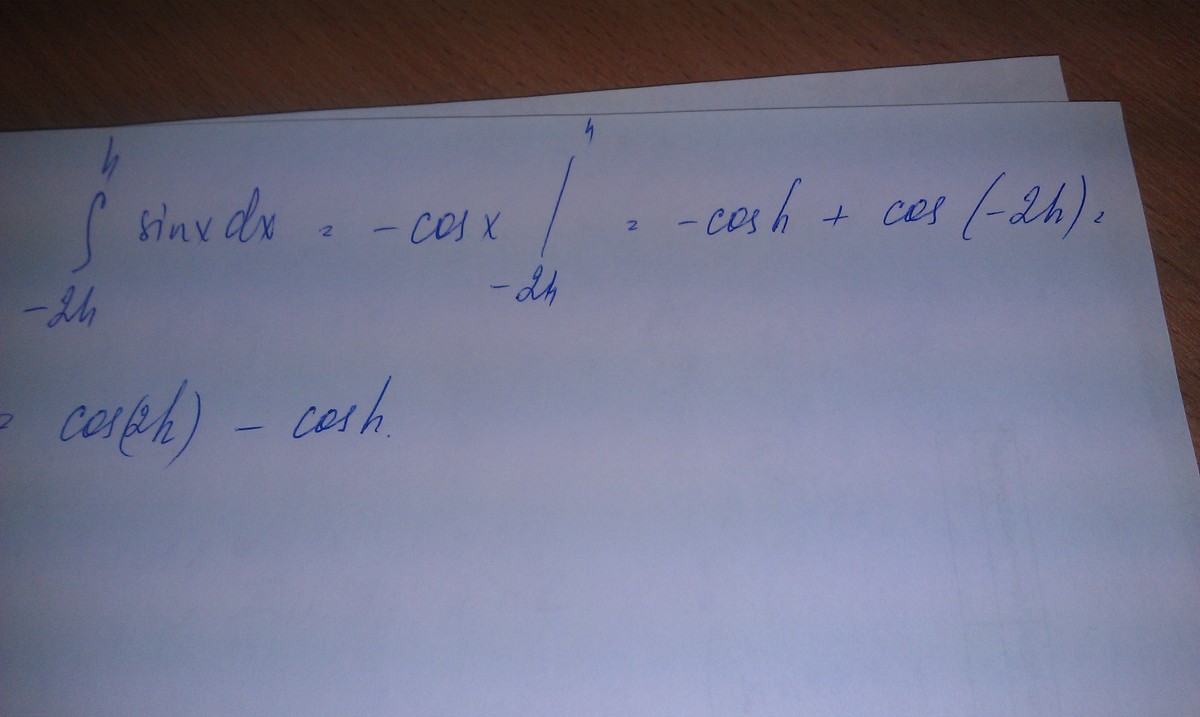 ∫_{-2h}^{h} sinx dx = -cosx |_{-2h}^{h} = -cosh + cos(-2h) =
= cos(2h) - cosh.